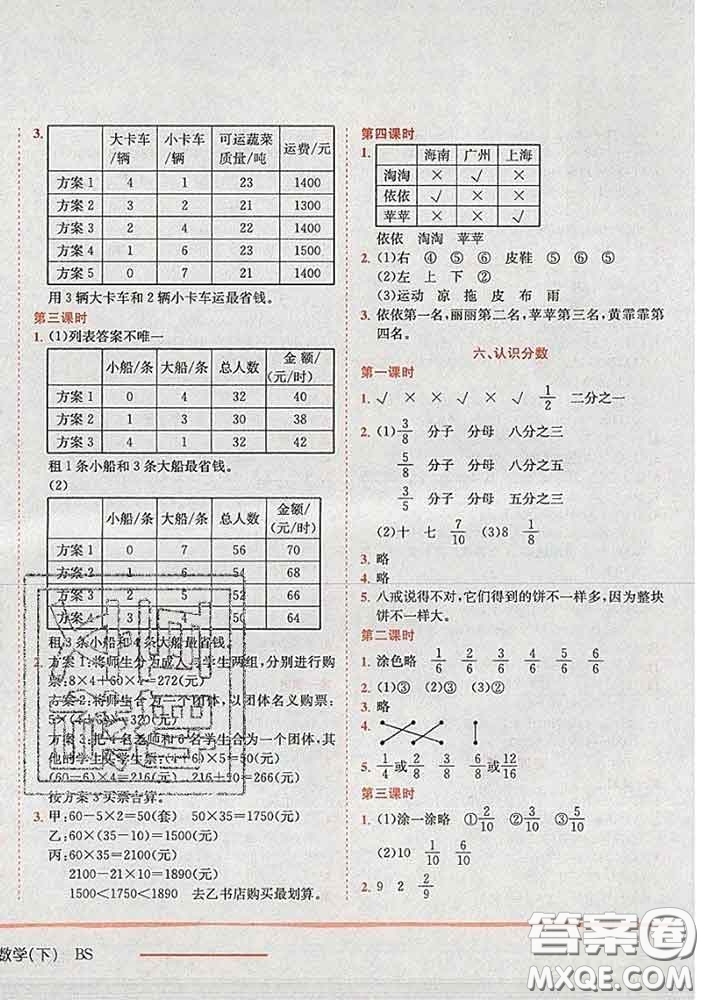 3.
大卡车/辆 小卡车/辆 可运蔬菜质量/吨 运费/元
方案1 4 1 23 1400
方案2 3 2 21 1300
方案3 2 4 22 1400
方案4 1 6 23 1500
方案5 0 7 21 1400
用3辆大卡车和2辆小卡车运最省钱。
第三课时
1. (1)列表答案不唯一
小船/条 大船/条 总人数 金额/(元/时)
方案1 0 4 32 40
方案2 1 3 30 38
方案3 4 1 32 42
租1条小船和3条大船最省钱。
(2)
小船/条 大船/条 总人数 金额/(元/时)
方案1 0 7 56 70
方案2 1 6 54 68
方案3 2 5 52 66
方案4 3 4 50 64
租3条小船和4条大船最省钱。
2. 方案1:将师生分为成人与学生两组,分别进行购
票:8×4+60×4=272(元)
方案2:将师生合为一个团体,以团体名义购票:
=320(元)
方案3:把4名老师和6名学生合为一个团体,其
他的学生买学生票:(4+6)×5=50(元)
(60-6)×4=216(元) 216+50=266(元)
按方案3买票合算。
3. 甲:60-5×2=50(套) 50×35=1750(元)
乙:60×(35-10)=1500(元)
丙:60×35=2100(元)
2100-21×10=1890(元)
1500<1750<1890 去乙书店购买最划算。
第四课时
1.
海南 广州 上海
淘淘 × √ ×
依依 √ × ×
苹苹 × × √
依依 淘淘 苹苹
2. (1)右 ④ ⑤ ⑥ 皮鞋 ⑤ ⑥
(2)左 上 下 ②
(3)运动 凉 拖 皮 布 雨
3. 依依第一名,丽丽第二名,苹苹第三名,黄霏霏第
四名。
六、认识分数
第一课时
1. √ × × √ × √ 1/2 二分之一
2. (1)3/8 分子 分母 八分之三
5/8 分子 分母 八分之五
3/5 分子 分母 五分之三
(2)十 七 7/10 (3)8 1/8
3. 略
4. 略
5. 八戒说得不对,它们得到的饼不一样多,因为整块
饼不一样大。
第二课时
1. 涂色略 1/6 2/6 3/6 4/6 5/6
2. (1)③ (2)①③
3. 略
4.
5. 1/4或2/8 3/8 6/8或12/16
第三课时
1. (1)涂一涂略 ①2/10 ③5/10
(2)10 1/10 6/10 4/10
2. 9 2 2/9
数学(下) BS
答案圈
MXQE.COM